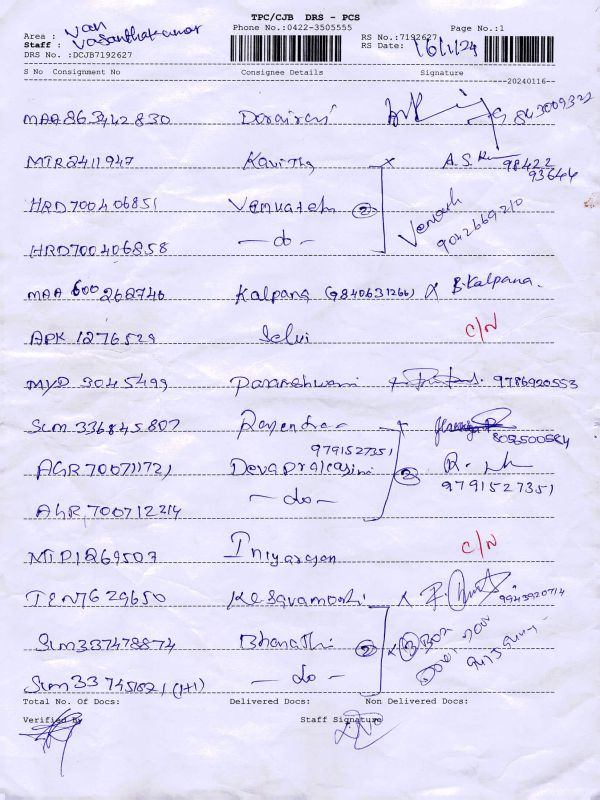 TPC/CJB DRS - PCS
Area : Van Phone No.:0422-3505555 Page No.:1
Staff : Vasanthakumar RS No.:7192627
DRS No. :DCJB7192627 RS Date: 16/1/24
S No Consignment No Consignee Details Signature
20240116
MAA863442830 Dorairaj
MTR2411947 Kavitha x A.S.R 98422
93644
HRD700406851 Venkatesh (2) Venkatesh
HRD700406858 — do — 9042669210
MAA 600262746 Kalpana (9840631266) x B.Kalpana.
APK 1276529 Selvi C/N
MYD 3045499 Parameshwari 9786920553
SLM 336845807 Rajendran
9791527351
AGR700711721 Devaprakasini (2)
9791527351
AGR700712214 — do —
MTP1269507 Iniyarajan C/N
TEN7629650 Kesavamoorthi x 9943920714
SLM337478874 Bharathi (2) x
SLM337451621 (1+1) — do —
Total No. Of Docs: Delivered Docs: Non Delivered Docs:
Verified By Staff Signature